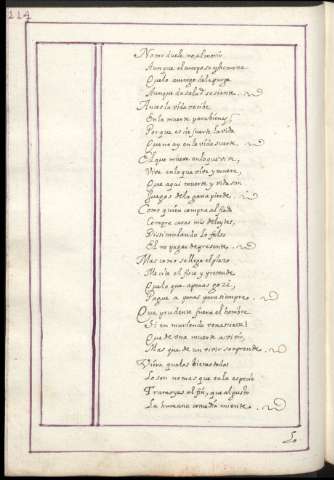 114
No me duele, no, el morir
Aunque el cuerpo se
Que lo amargo de la purga
Aunque da salud se siente.
Antes la vida
En la muerte parabienes,
Porque es sin suerte la vida
Que no ay en la vida suerte.
El que muere en lo que vive,
Vive en lo que vive y muere,
Que aqui muerte y vida son
Juegos de la gana pierde.
Como quien compra al fiado
Compre caros mis deleytes,
Dissimulando lo falso
El no pagar de presente.
Mas como se llega el plazo
Me cita el fisco, y pretende
Que lo que apenas gozé,
Pague a penas para siempre.
Que prudente fuera el hombre
Si en muriendo renaciesse!
Que de una muerte a
Mas que de un vivir se aprende.
Vidra quales bienandadas
Lo son no mas que en la especie
Tramoyas al fin, que al gusto
La humana comedia miente.
Lo